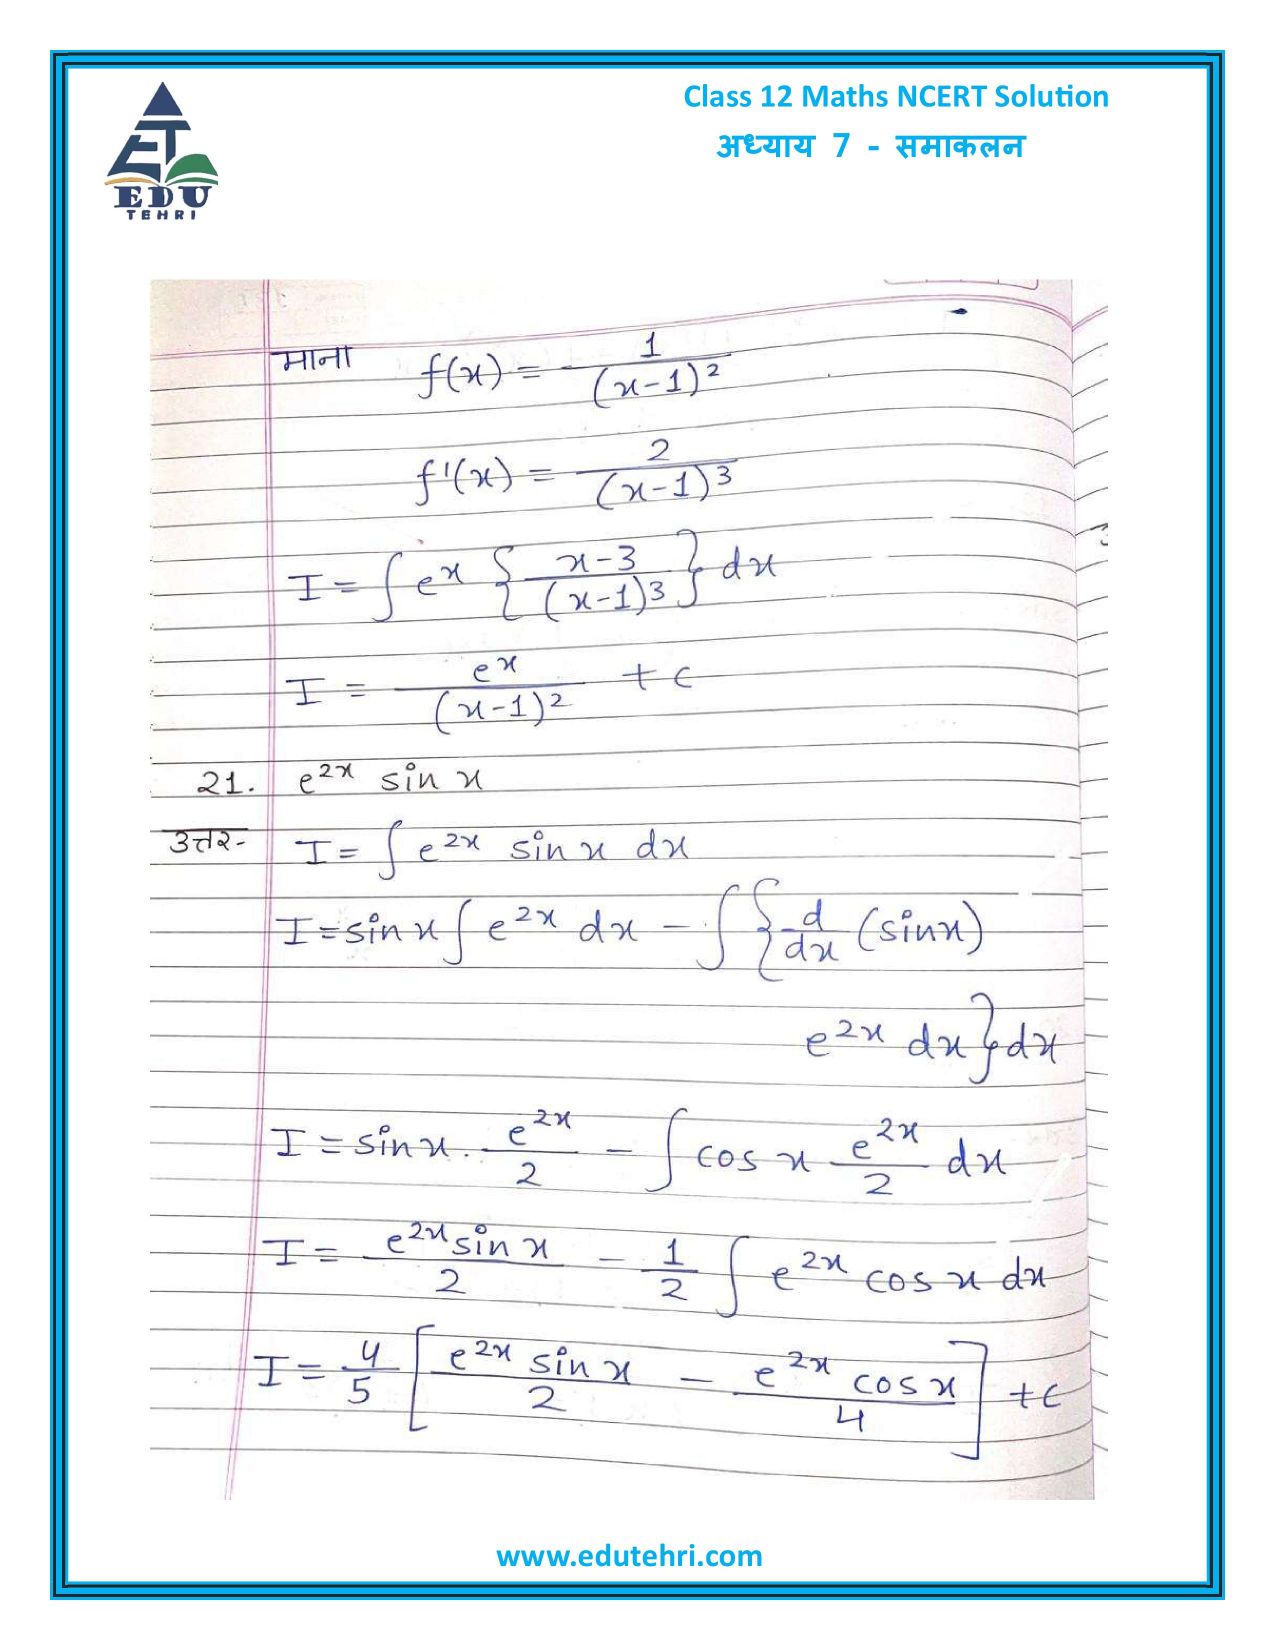 Class 12 Maths NCERT Solution
अध्याय 7 - समाकलन
ET
EDU
TEHRI
माना f(x) = 1/(x-1)²
f'(x) = 2/(x-1)³
I = ∫ eˣ {x-3/(x-1)³} dx
I = eˣ/(x-1)² + c
21. e²ˣ sin x
उत्तर- I = ∫ e²ˣ sin x dx
I = sin x ∫ e²ˣ dx - ∫ {d/dx (sin x)
e²ˣ dx} dx
I = sin x . e²ˣ/2 - ∫ cos x e²ˣ/2 dx
I = e²ˣ sin x/2 - 1/2 ∫ e²ˣ cos x dx
I = 4/5 [e²ˣ sin x/2 - e²ˣ cos x/4] + c
www.edutehri.com